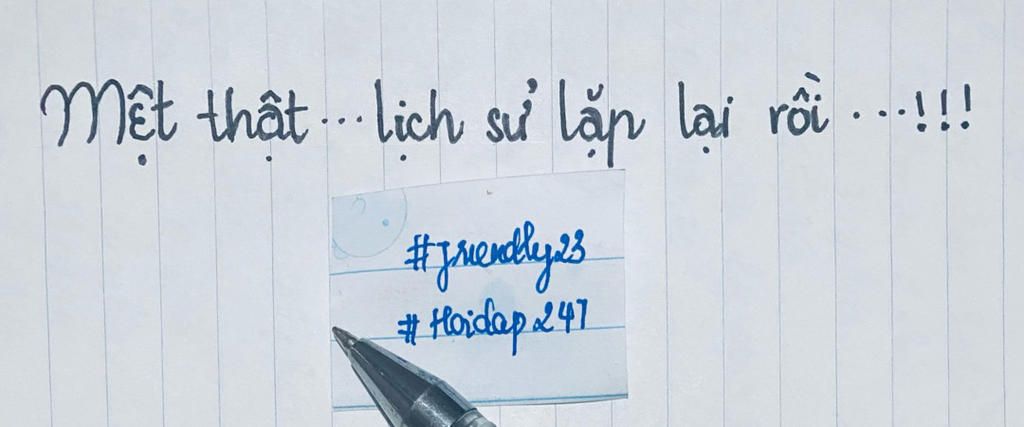 Mệt thật...lịch sử lặp lại rồi...!!!
#friendly23
#Hoidap247